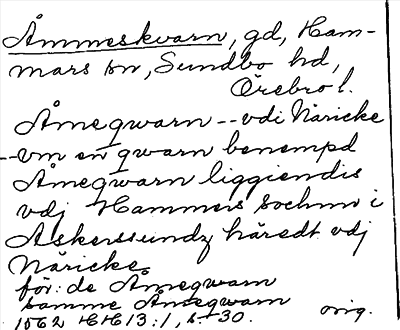 Åmmeskvarn, gd, Ham-
mars sn, Sundbo hd,
Örebro l.
Åmeqwarn -- vdi Näricke
-- vm en qwarn benempd
Åmeqwarn liggiendis
vdj Hammers sochnn i
Askerssundz häredt vdj
Näricke.
för: de Åmeqwarn
samme Åmeqwarn
1562 HH 13:1, s. 30. orig.